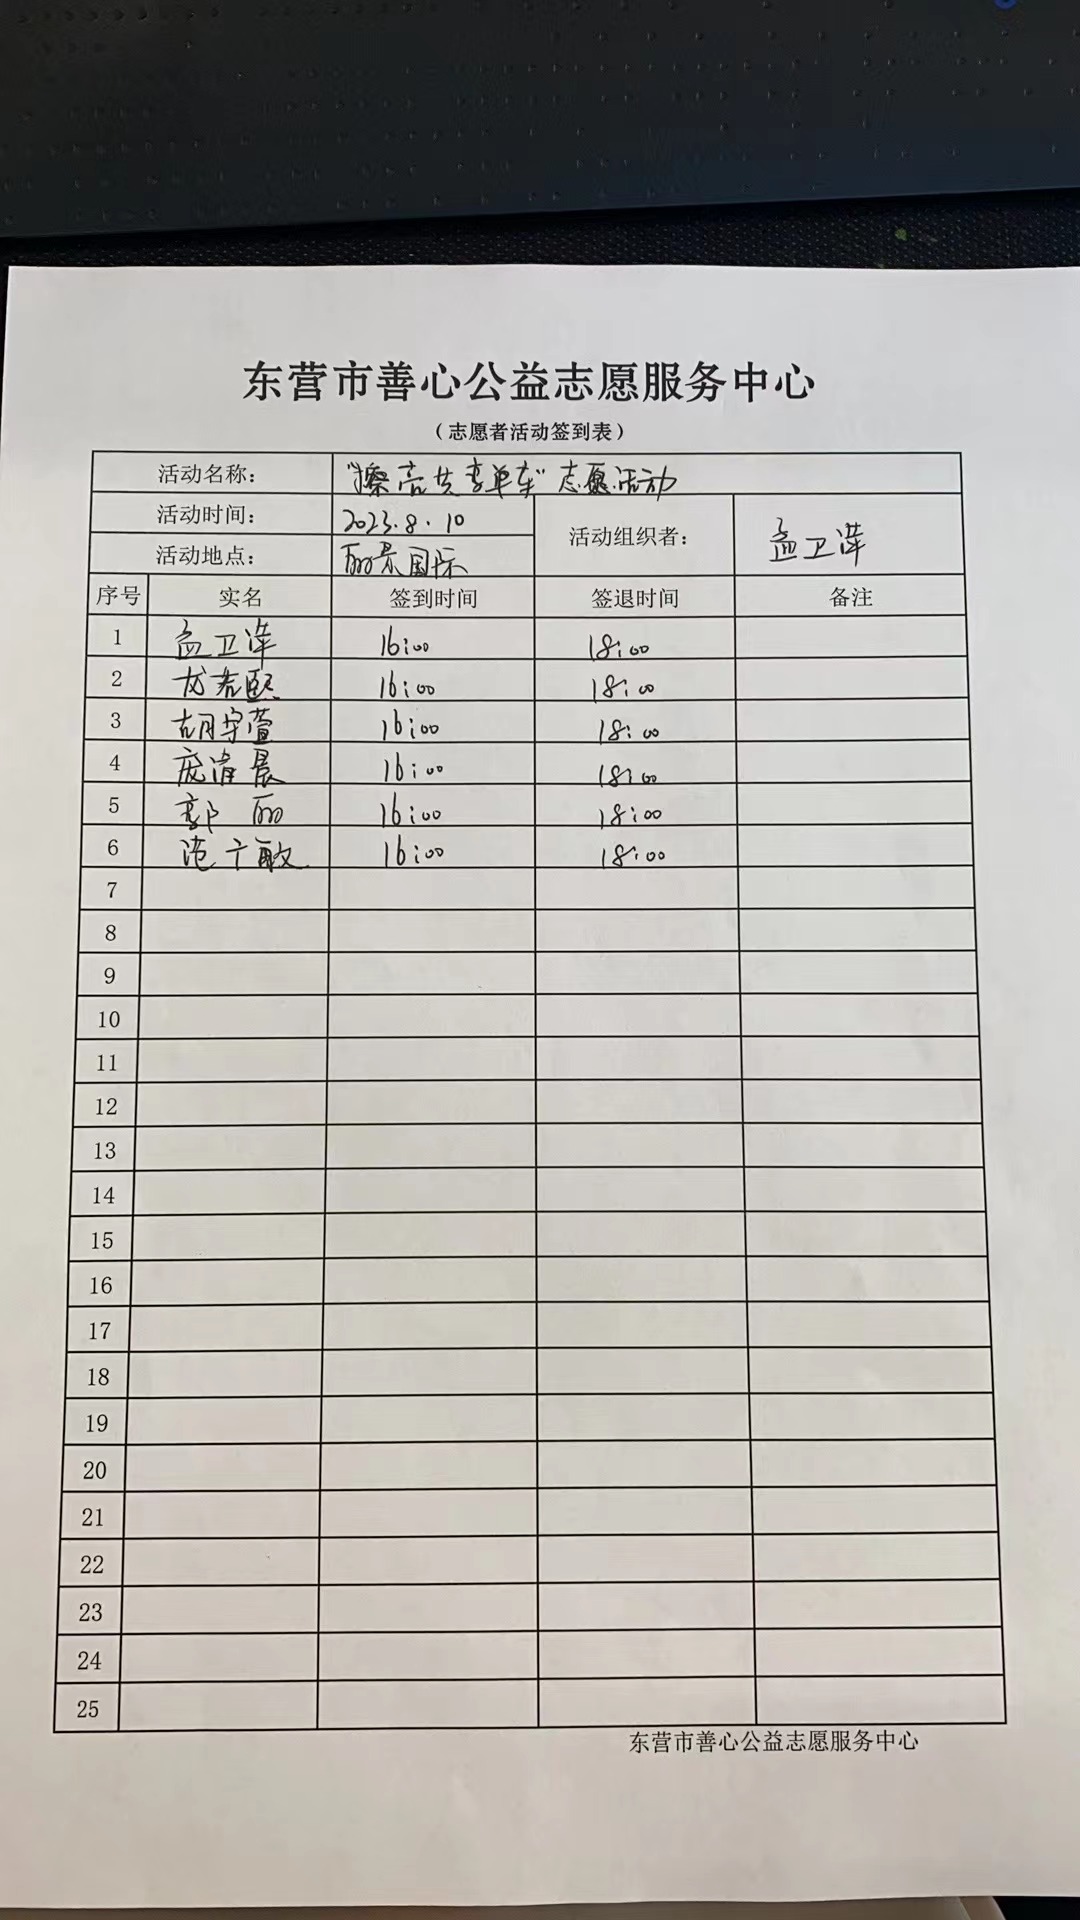 东营市善心公益志愿服务中心
（志愿者活动签到表）
活动名称： "擦亮共享单车"志愿活动
活动时间： 2023.8.10 活动组织者： 孟卫萍
活动地点： 丽景国际
序号 实名 签到时间 签退时间 备注
1 孟卫萍 16:00 18:00
2 16:00 18:00
3 胡宇萱 16:00 18:00
4 庞清晨 16:00 18:00
5 郭丽 16:00 18:00
6 16:00 18:00
7
8
9
10
11
12
13
14
15
16
17
18
19
20
21
22
23
24
25
东营市善心公益志愿服务中心